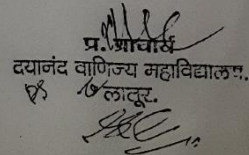 प्र. प्राचार्य
दयानंद वाणिज्य महाविद्यालय.
लातूर.